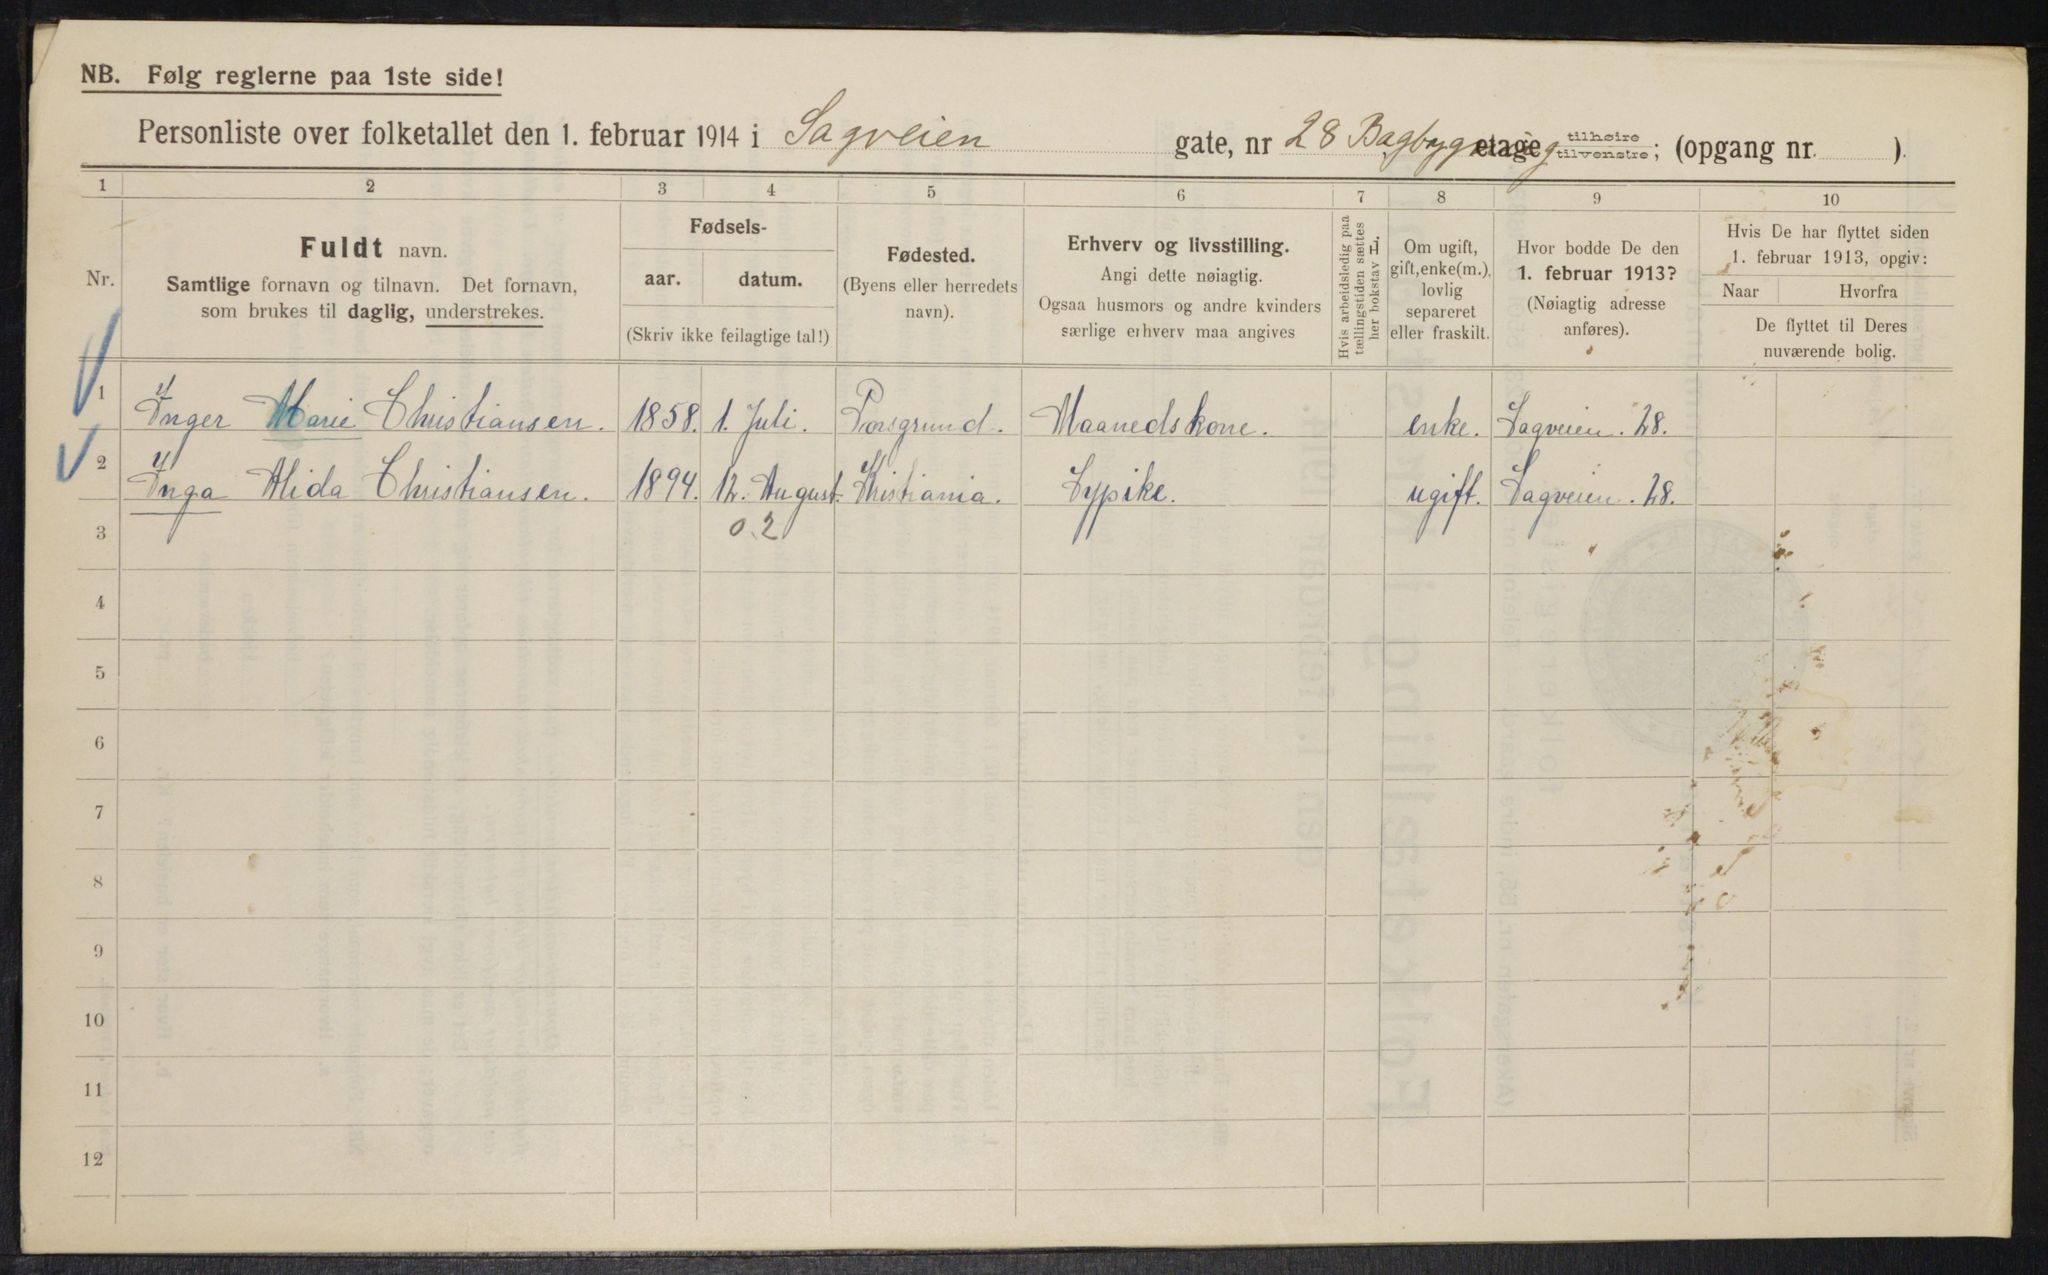 NB. Følg reglerne paa 1ste side!
Personliste over folketallet den 1. februar 1914 i Sagveien gate, nr 28 Bagbygning etage tilhøire tilvenstre; (opgang nr. ).
1 2 3 4 5 6 7 8 9 10
Nr.
Fuldt navn.
Samtlige fornavn og tilnavn. Det fornavn,
som brukes til daglig, understrekes.
Fødsels-
aar. datum.
(Skriv ikke feilagtige tal!)
Fødested.
(Byens eller herredets
navn).
Erhverv og livsstilling.
Angi dette nøiagtig.
Ogsaa husmors og andre kvinders
særlige erhverv maa angives
Hvis arbeidsledig paa
tællingstiden sættes
her bokstav L.
Om ugift,
gift, enke(m.),
lovlig
separeret
eller fraskilt.
Hvor bodde De den
1. februar 1913?
(Nøiagtig adresse
anføres).
Hvis De har flyttet siden
1. februar 1913, opgiv:
Naar Hvorfra
De flyttet til Deres
nuværende bolig.
1 Inger Marie Christiansen. 1858. 1. Juli. Porsgrund. Maanedskone. enke. Sagveien. 28.
2 Inga Alida Christiansen. 1894. 12. August. Kristiania. Sypike. ugift. Sagveien. 28.
0.2
3
4
5
6
7
8
9
10
11
12